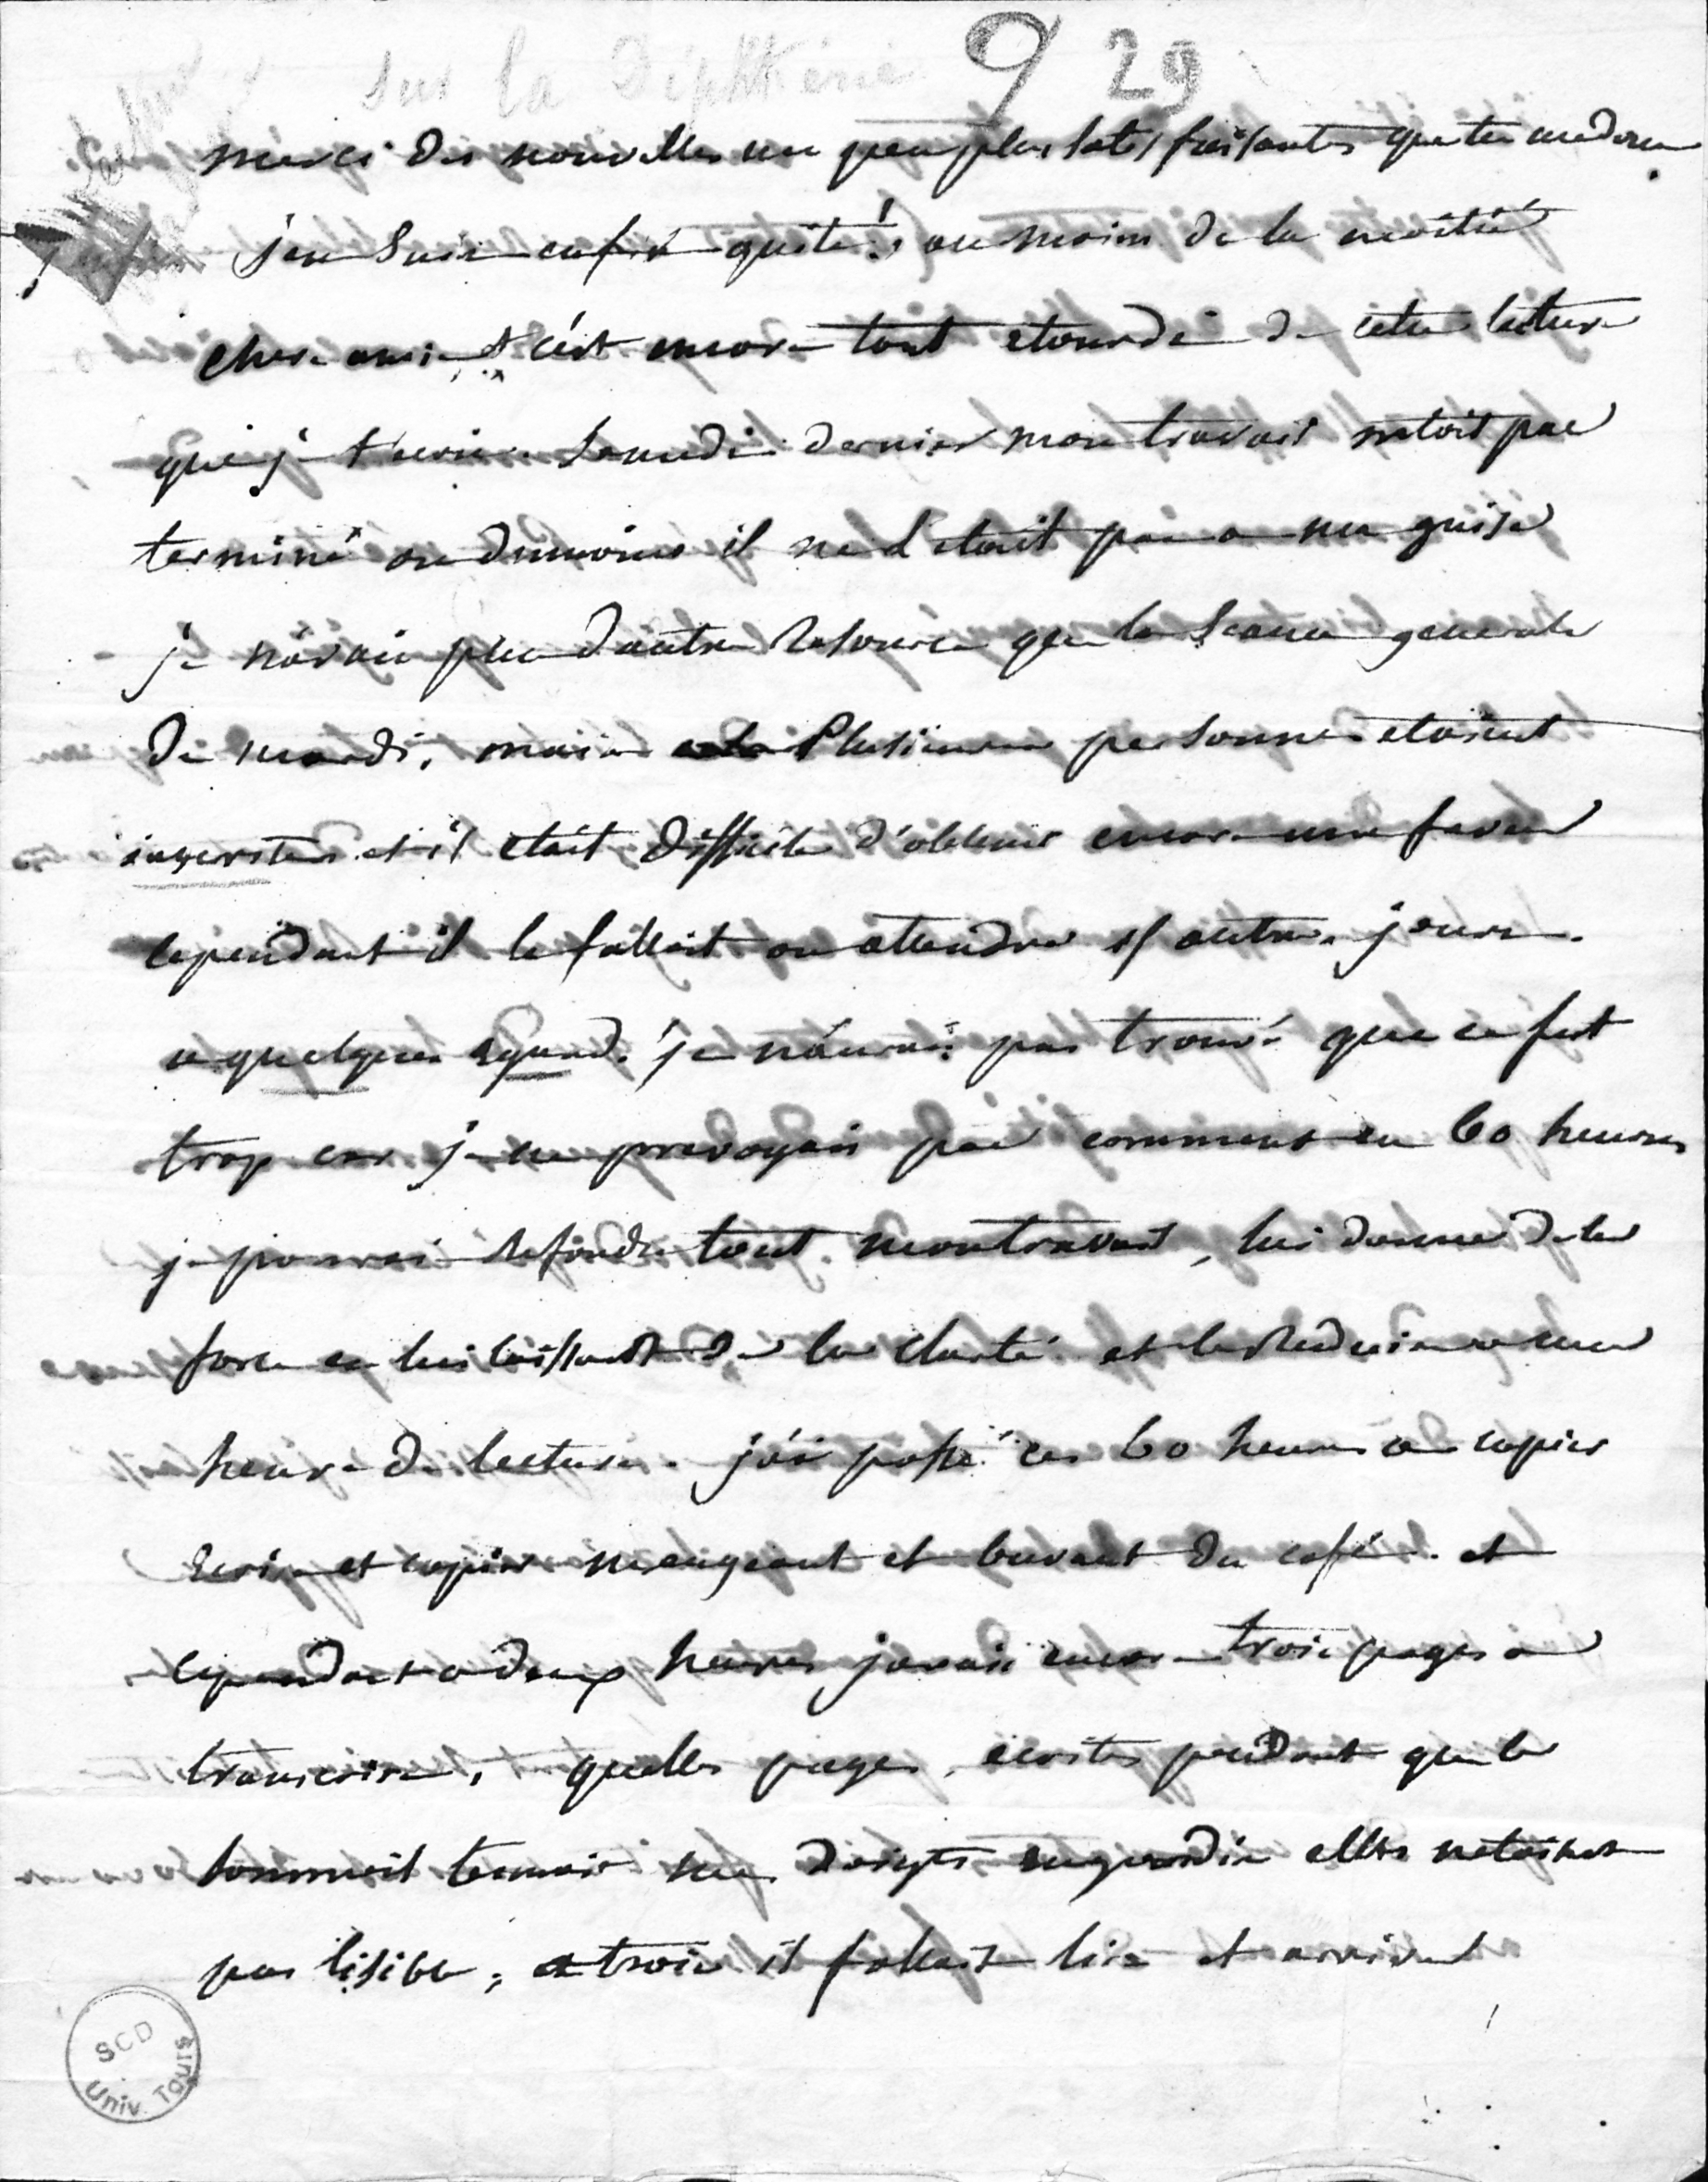 Sur la Diphtérie 9 29
merci des nouvelles un peu plus satisfaisantes que tu me donne
j'en suis enfin quite! au moins de la moitié
chere amie et c'est encore tout etourdi de cette lecture
que je t'ecris. Samedi dernier mon travail netoit pas
terminé ou dumoins il ne l'etoit pas a ma guise
je n'avois plus d'autre resource que la seance generale
de mardi, mais Plusieurs personnes etoient
inscrites et il etait difficile d'obtenir encore une faveur
cependant il le falloit ou attendre autres jours.
a quelques egard. je n'aurais pas trouvé que ce fut
trop car je ne prevoyais pas comment en 60 heures
je pourrai refondre tout montravail, lui donner de la
force en lui laissant de la clarté et le reduire a une
heure de lecture. j'ai passé ces 60 heures a copier
ecrire et copier mangeant et buvant du café. et
cependant a deux heures javais encore trois pages a
transcrire, quelles pages, ecrites pendant que le
sommeil tenoit mes doigts engourdis elles netoient
pas lisible, a trois il fallait lire et arriver
SCD
Univ. Tours